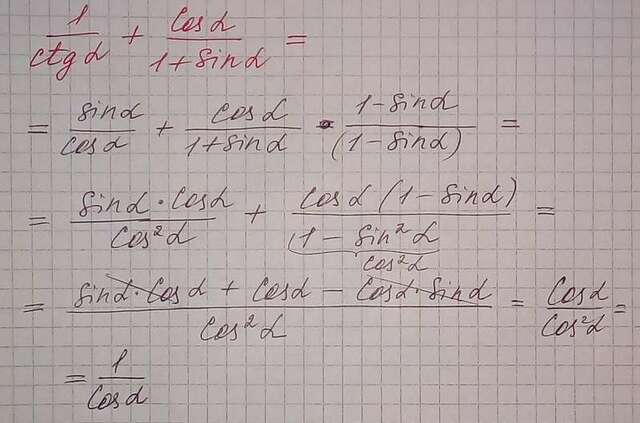 1/ctg α + cos α/(1 + sin α) =
= sin α/cos α + cos α/(1 + sin α) · (1 - sin α)/(1 - sin α) =
= sin α · cos α/cos² α + cos α (1 - sin α)/(1 - sin² α) =
cos² α
= (sin α · cos α + cos α - cos α · sin α)/cos² α = cos α/cos² α =
= 1/cos α